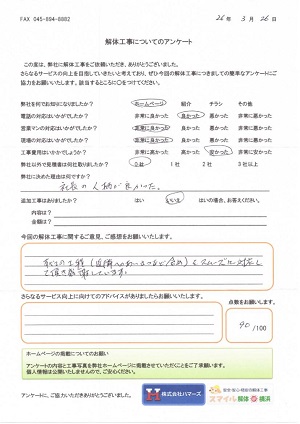 FAX 045-894-8882
26年 3月 26日
解体工事についてのアンケート
この度は、弊社に解体工事をご依頼いただき、ありがとうございました。
さらなるサービスの向上を目指していきたいと考えており、ぜひ今回の解体工事につきましての簡単なアンケートにご
協力をお願いします。該当するところに〇をつけてください。
弊社を何でお知りになりましたか? ホームページ 紹介 チラシ その他
電話の対応はいかがでしたか? 非常に良かった 良かった 悪かった 非常に悪かった
営業マンの対応はいかがでしたか? 非常に良かった 良かった 悪かった 非常に悪かった
現場の対応はいかがでしたか? 非常に良かった 良かった 悪かった 非常に悪かった
工事費用はいかがでしょうか? 非常に高かった 高かった 安かった 非常に安かった
弊社以外で見積書は何社取りましたか? 0社 1社 2社 3社以上
弊社に決めた理由は何ですか?
社長の人柄が良かった。
追加工事はありましたか? はい いいえ はいの場合、お答えください。
内容は?
金額は?
今回の解体工事に関するご意見、ご感想をお願いいたします。
全ての工程(近隣へのあいさつなど含め)をスムーズに対応し
て頂き感謝しています。
さらなるサービス向上に向けてのアドバイスがありましたらお願いします。
点数をお願いします。
90/100
ホームページの掲載についてのお願い
アンケートの内容と工事写真を弊社ホームページに掲載させていただくことをご了承願います。
個人情報は公開いたしませんので、ご安心ください。
アンケートに、ご協力いただきありがとうございました。
H 株式会社ハマーズ
安全・安心・格安の解体工事
スマイル解体@横浜